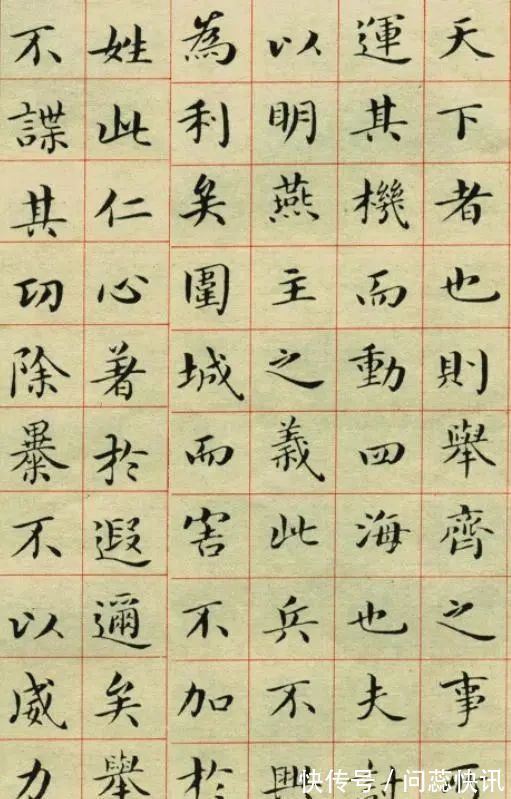 天下者也則舉齊之事所
運其機而動四海也夫
以明燕主之義此兵不興
為利矣圍城而害不加於
姓此仁心著於遐邇矣舉
不謀其功除暴不以威力
快传号/问蕊快讯